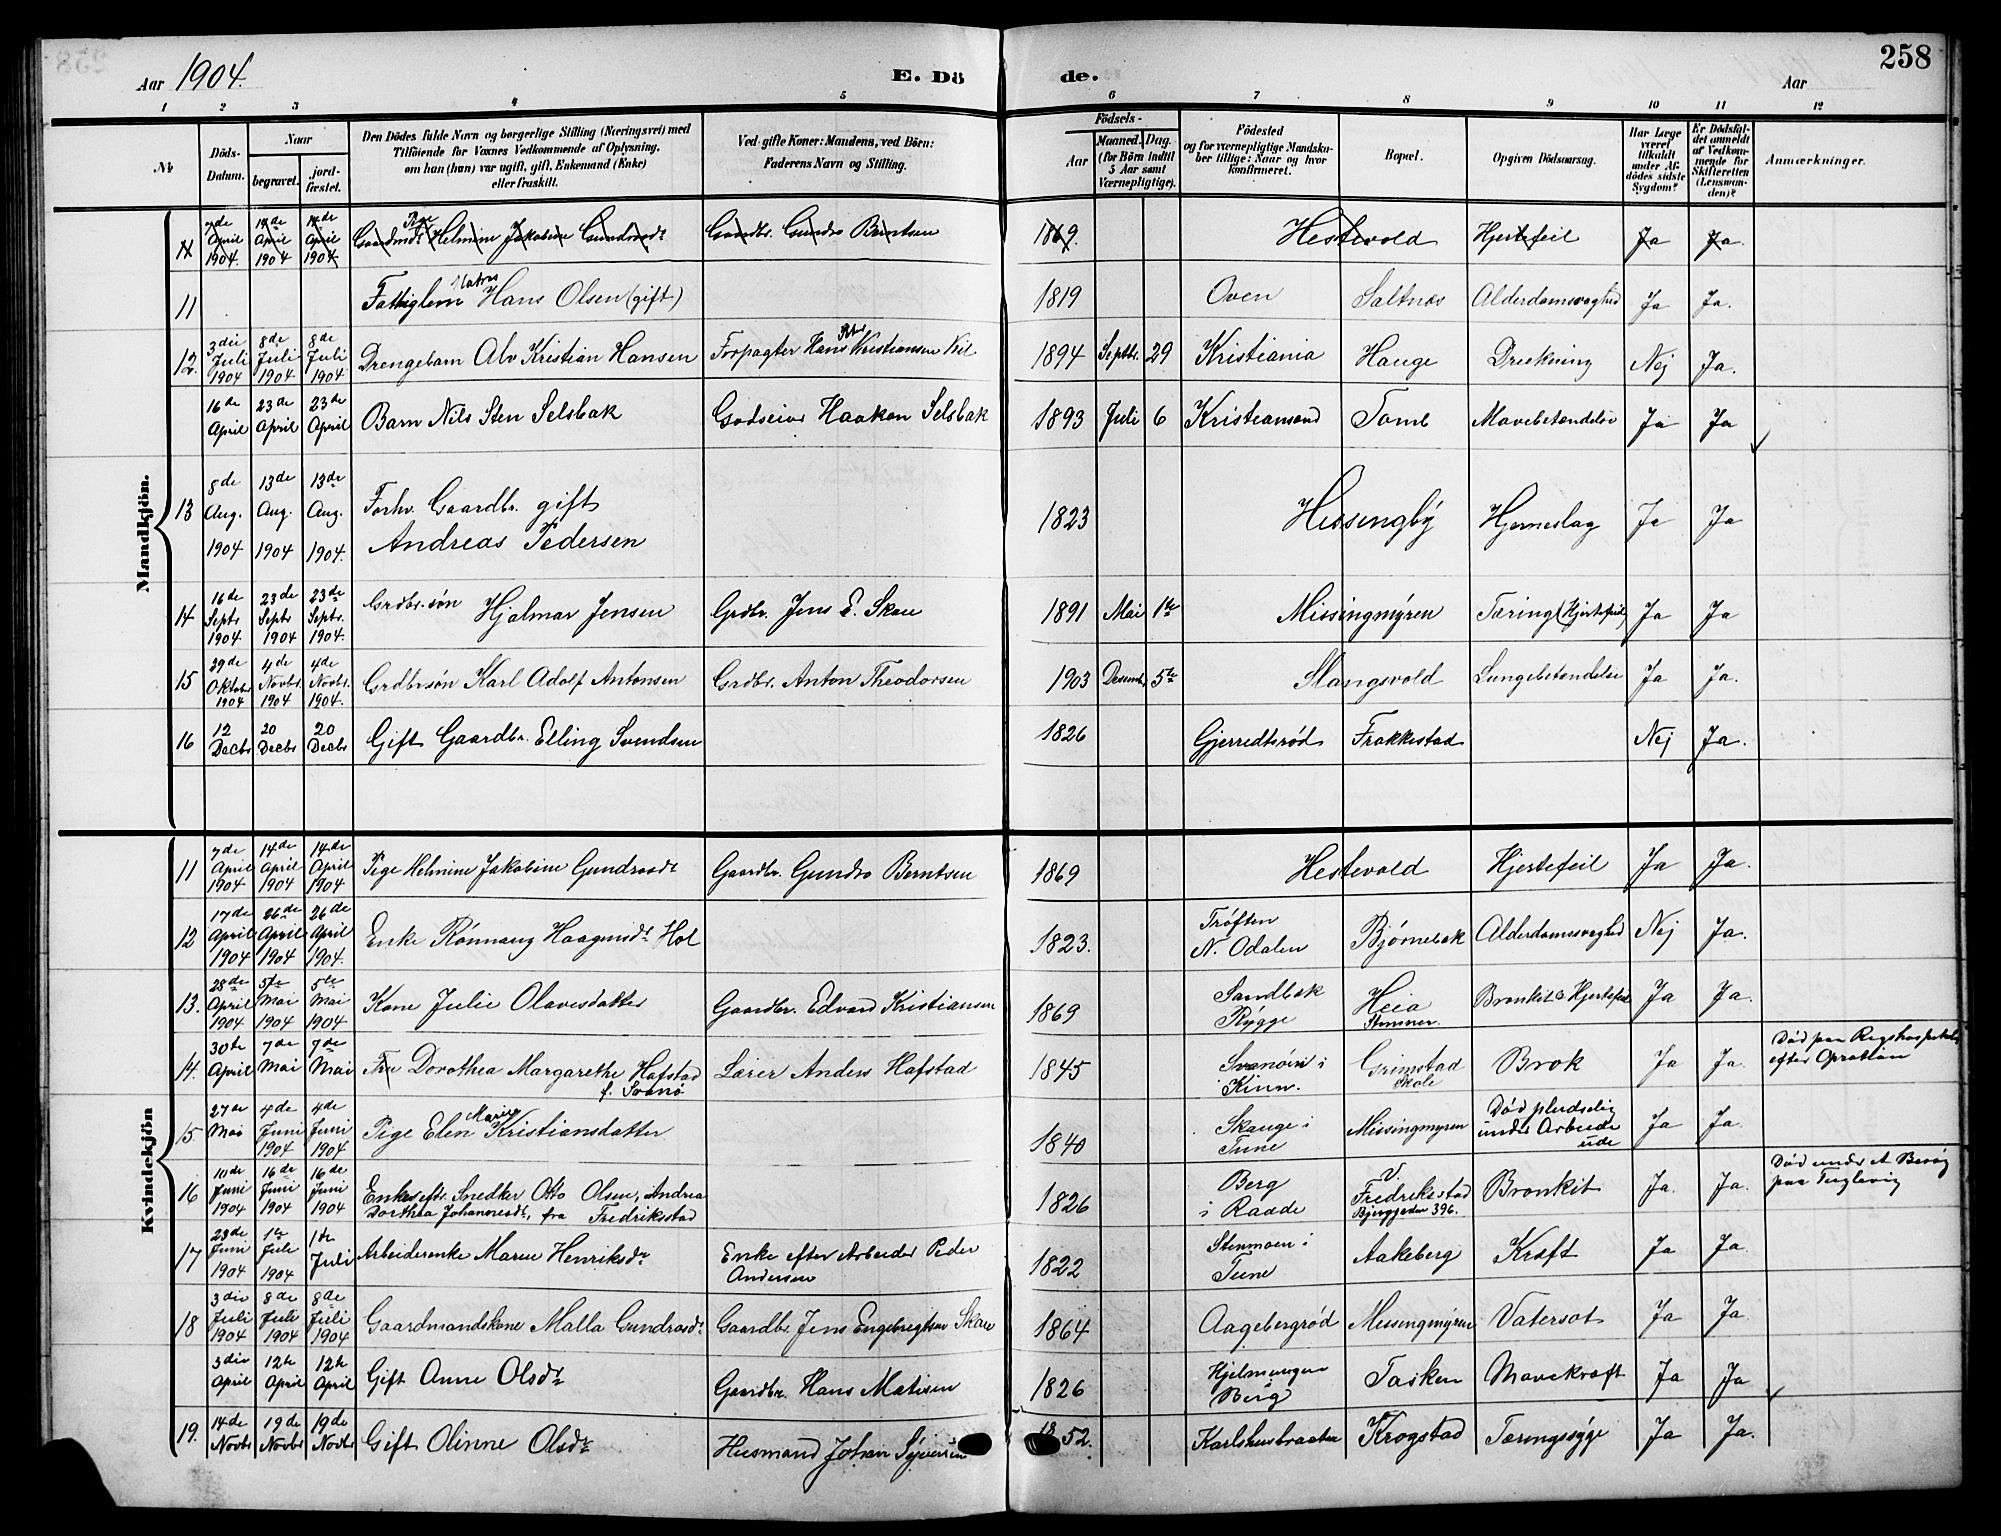 258
Aar 1904.
E. Dö
de.
Aar
1 2 3 4 5 6 7 8 9 10 11 12
No
Döds-Datum.
Naar
begravet.
jord-fæstet.
Den Dödes fulde Navn og borgerlige Stilling (Næringsvei) med
Tilföiende for Voxnes Vedkommende af Oplysning,
om han (hun) var ugift, gift, Enkemand (Enke)
eller fraskilt.
Ved gifte Koner: Mandens, ved Börn:
Faderens Navn og Stilling.
Födsels-
Aar
Maaned. Dag.
(for Börn indtil
5 Aar samt
Værnepligtige).
Födested
og for værnepligtige Mandska-
ber tillige: Naar og hvor
konfirmeret.
Bopæl.
Opgiven Dödsaarsag.
Har Læge
været
tilkaldt
under Af-
dödes sidste
Sygdom?
Er Dödsfal-
det anmeldt
af Vedkom-
mende for
Skifteretten
(Lensman-
den)?
Anmærkninger.
Mandkjön.
11 7de April 1904. 14de April 1904 14de April 1904 Gaardmds Pige Helmine Jakobine Gundrosdt Gaardbr. Gundro Berntsen 1869. Hestevold Hjertefeil Ja Ja.
11 Fattiglem Hans Olsen (gift) 1819 Oven Saltnes Alderdomsvaghed Ja Ja.
12. 3die Juli 1904 8de Juli 1904. 8de Juli 1904. Drengebarn Alv Kristian Hansen Forpagter Hans Peter Kristiansen Kil 1894 Septbr. 29 Kristiania Hauge Drukning Nej Ja.
16de April 23de April 23de April Barn Nils Sten Selsbak Godseier Haakon Selsbak 1893 Juli 6 Kristiansand Tomb Mavebetændelse Ja Ja
13 8de Aug. 1904 13de Aug. 1904 13de Aug. 1904. Forhv. Gaardbr. gift
Andreas Pedersen 1823 Hissingby Hjerneslag Ja Ja
14 16de Septr 1904. 23de Septr 1904 23de Septr. 1904. Grdbr.søn Hjalmar Jensen Grdbr. Jens E. Skau 1891 Mai 1te Missingmyren Tæring (Hjertefeil) Ja Ja
15 29de Oktobr 1904 4de Novbr. 1904 4de Novbr. 1904. Grdbrsøn Karl Adolf Antonsen Grdbr. Anton Theodorsen 1903 Desembr 5te Slangsvold Lungebetændelse Ja Ja.
16 12 Decbr 20 Decbr 20 Decbr Gift Gaardbr. Elling Svendsen 1826 Gjerredtsrød Frakkestad Nej Ja.
Kvindekjön
11 7de April 1904 14de April 1904 14de April 1904 Pige Helmine Jakobine Gundrosdt Gaardbr. Gundro Berntsen 1869 Hestevold Hjertefeil Ja Ja.
12 17de April 1904 26de April 1904 26de April 1904. Enke Rönnaug Haagensdr Hol 1823. Trøften
N. Odalen Bjørnebæk Alderdomssvaghed Nej Ja.
13. 28de April 1904 5te Mai 1904 5te Mai 1904 Kone Julie Olavesdatter Gaardbr. Edvard Kristiansen 1869 Sandbæk
Rygge Heia
Stomner. Bronkit & Hjertefeil Ja Ja.
14. 30te April 7de Mai 7de Mai Fru Dorothea Margarethe Hafstad
f. Svanø Lærer Anders Hafstad 1845 Svanøen i
Kinn. Grimstad
Skole Brok Ja Ja. Død paa Rigshospitalet
efter Opration
15 27de Mai 4de Juni 1904 4de Juni 1904 Pige Elen Marie Kristiansdatter 1840 Skauge i
Tune Missingmyren Død pludselig
under Arbeide
ude Ja Ja.
16 10de Juni 1904 16de Juni 1904 16de Juni 1904 Enke efter Snedker Otto Olsen, Andrea
Dorthea Johannesdt, fra Fredriksstad 1826 Berg
i Raade V.
Fredriksstad
Bjerggaden 396. Bronkit Ja. Ja. Død under et Besøg
paa
17 23de Juni 1904 1te Juli 1904 1te Juli Arbeiderenke Maren Henriksdr Enke efter Arbeider Peder
Andersen 1822 Stenmoen i
Tune Aakeberg Kræft Ja Ja.
18 3die Juli 1904 8de Juli 1904 8de Juli 1904 Gaardmandskone Malla Gundrosdt Gaardbr. Jens Engebregtsen Skau 1864 Aagebergrød Missingmyren Vatersot Ja Ja.
3die April 12te April 12te April Gift Anne Olsdr Gaardbr. Hans Matisen 1826 Berg Tasken Mavekræft Ja Ja
19. 14de Novbr 19de Novbr 19de Novbr Gift Olinne Olsdr Husmand Johan Syversen 1852. Karlshusbraaten Krogstad Tæringssyge Ja Ja.